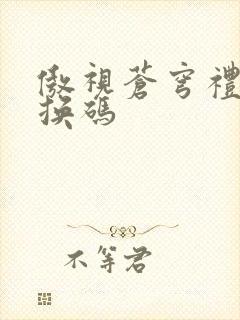 傲視蒼穹禮
換碼
不等君